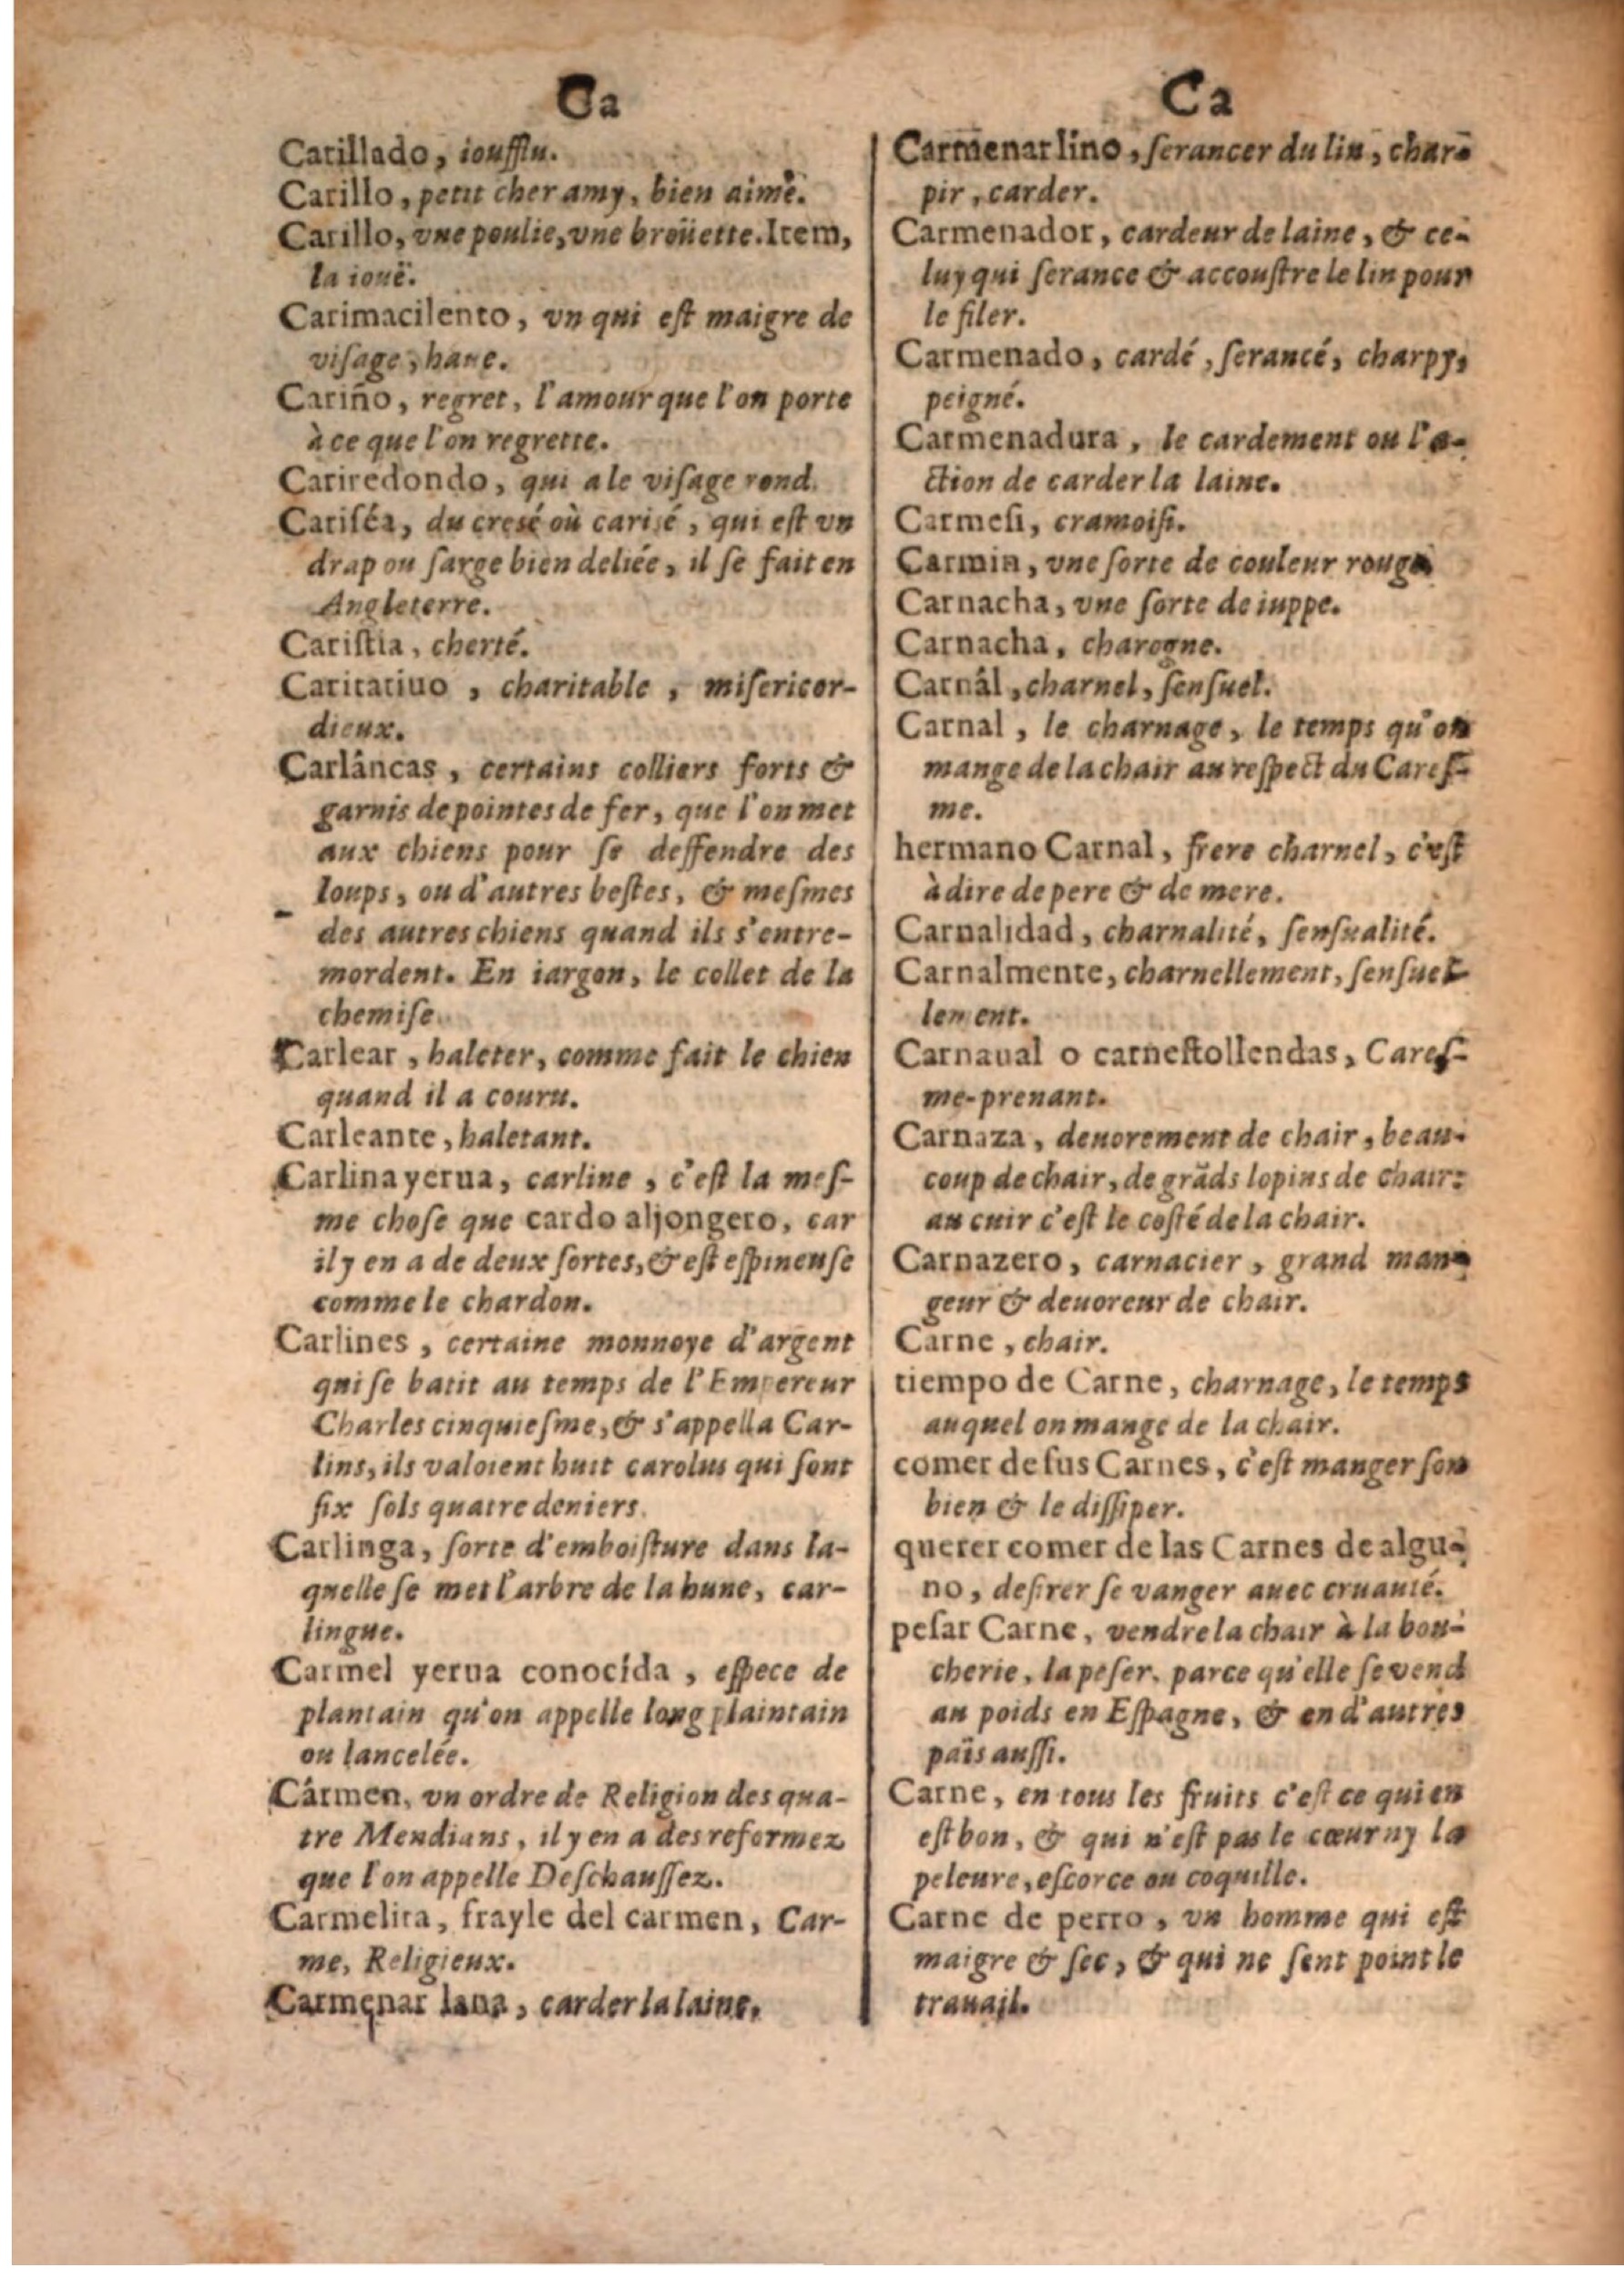 Ca
Carillado, iouflu.
Carillo, petit cher amy, bien aimé.
Carillo, vne poulie, vne broüette. Item,
la iouë.
Carimacilento, vn qui eſt maigre de
viſage, haue.
Cariño, regret, l'amour que l'on porte
à ce que l'on regrette.
Cariredondo, qui a le viſage rond.
Cariſéa, du creſé où cariſé, qui eſt vn
drap ou ſarge bien deliée, il ſe fait en
Angleterre.
Cariſtia, cherté.
Caritatiuo, charitable, miſericor-
dieux.
Carlâncas, certains colliers forts &
garnis de pointes de fer, que l'on met
aux chiens pour ſe deffendre des
loups, ou d'autres beſtes, & meſmes
des autres chiens quand ils s'entre-
mordent. En iargon, le collet de la
chemiſe.
Carlear, haleter, comme fait le chien
quand il a couru.
Carleante, haletant.
Carlina yerua, carline, c'eſt la meſ-
me choſe que cardo aljongero, car
il y en a de deux ſortes, & eſt eſpineuſe
comme le chardon.
Carlines, certaine monnoye d'argent
qui ſe batit au temps de l'Empereur
Charles cinquieſme, & s'appella Car-
lins, ils valoient huit carolus qui ſont
ſix ſols quatre deniers.
Carlinga, ſorte d'emboiſture dans la-
quelle ſe met l'arbre de la hune, car-
lingue.
Carmel yerua conocída, eſpece de
plantain qu'on appelle long plaintain
ou lancelée.
Cârmen, vn ordre de Religion des qua-
tre Mendians, il y en a des reformez
que l'on appelle Deſchauſſez.
Carmelita, frayle del carmen, Car-
me, Religieux.
Carmenar lana, carder la laine.
Ca
Carmenar lino, ſerancer du lin, char-
pir, carder.
Carmenador, cardeur de laine, & ce-
luy qui ſerance & accouſtre le lin pour
le filer.
Carmenado, cardé, ſerancé, charpy,
peigné.
Carmenadura, le cardement ou l'a-
ction de carder la laine.
Carmeſi, cramoiſi.
Carmin, vne ſorte de couleur rouge
Carnacha, vne ſorte de iuppe.
Carnacha, charogne.
Carnâl, charnel, ſenſuel.
Carnal, le charnage, le temps qu'on
mange de la chair au reſpect du Careſ-
me.
hermano Carnal, frere charnel, c'eſt
à dire de pere & de mere.
Carnalidad, charnalité, ſenſualité.
Carnalmente, charnellement, ſenſuel-
lement.
Carnaual o carneſtollendas, Careſ-
me-prenant.
Carnaza, deuorement de chair, beau-
coup de chair, de grãds lopins de chair:
au cuir c'eſt le coſté de la chair.
Carnazero, carnacier, grand man-
geur & deuoreur de chair.
Carne, chair.
tiempo de Carne, charnage, le temps
auquel on mange de la chair.
comer de ſus Carnes, c'eſt manger ſon
bien & le diſſiper.
querer comer de las Carnes de algu-
no, deſirer ſe vanger auec cruauté.
peſar Carne, vendre la chair à la bou-
cherie, la peſer, parce qu'elle ſe vend
au poids en Eſpagne, & en d'autres
païs auſſi.
Carne, en tous les fruits c'eſt ce qui en
eſt bon, & qui n'eſt pas le cœur ny la
peleure, eſcorce ou coquille.
Carne de perro, vn homme qui eſt
maigre & ſec, & qui ne ſent point le
trauail.